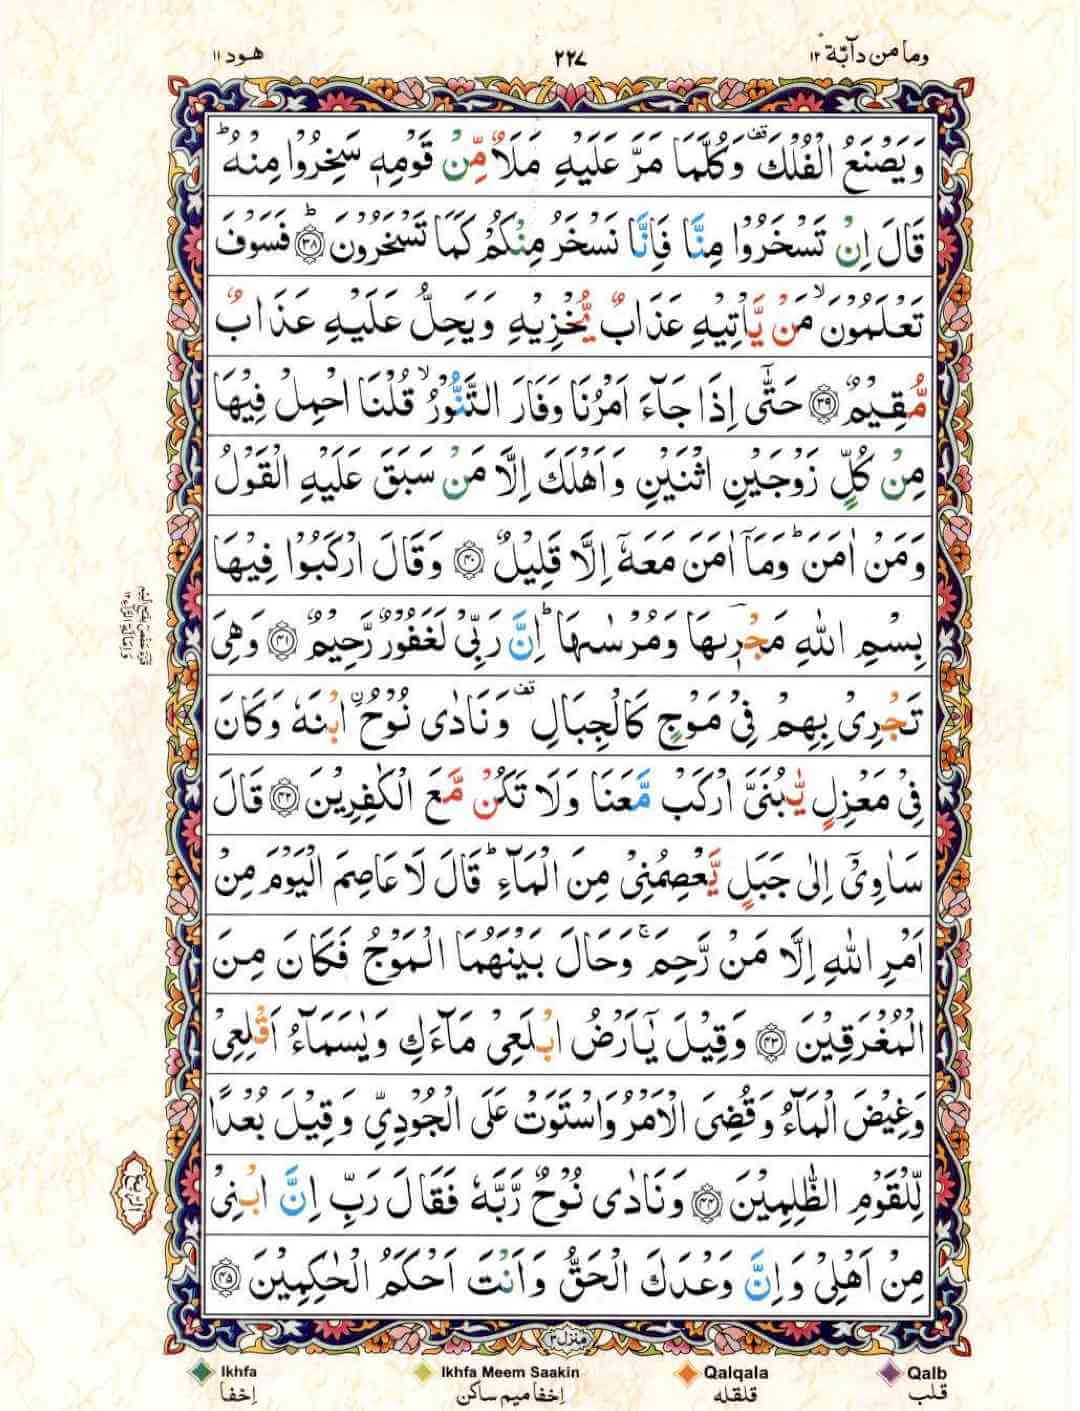 وما من دآبة ۱۲
۲۲۷
هود ۱۱
وَيَصْنَعُ الْفُلْكَ ۫ وَكُلَّمَا مَرَّ عَلَيْهِ مَلَاٌ مِّنْ قَوْمِهٖ سَخِرُوْا مِنْهُ ؕ
قَالَ اِنْ تَسْخَرُوْا مِنَّا فَاِنَّا نَسْخَرُ مِنْكُمْ كَمَا تَسْخَرُوْنَ ؕ ۳۸ فَسَوْفَ
تَعْلَمُوْنَ ۙ مَنْ يَّاْتِيْهِ عَذَابٌ يُّخْزِيْهِ وَيَحِلُّ عَلَيْهِ عَذَابٌ
مُّقِيْمٌ ۳۹ حَتّٰۤى اِذَا جَآءَ اَمْرُنَا وَفَارَ التَّنُّوْرُ ۙ قُلْنَا احْمِلْ فِيْهَا
مِنْ كُلٍّ زَوْجَيْنِ اثْنَيْنِ وَاَهْلَكَ اِلَّا مَنْ سَبَقَ عَلَيْهِ الْقَوْلُ
وَمَنْ اٰمَنَ ؕ وَمَاۤ اٰمَنَ مَعَهٗۤ اِلَّا قَلِيْلٌ ۴۰ وَقَالَ ارْكَبُوْا فِيْهَا
بِسْمِ اللّٰهِ مَجْرٖىهَا وَمُرْسٰىهَا ؕ اِنَّ رَبِّيْ لَغَفُوْرٌ رَّحِيْمٌ ۴۱ وَهِيَ
تَجْرِيْ بِهِمْ فِيْ مَوْجٍ كَالْجِبَالِ قف وَنَادٰى نُوْحُ ۨ ابْنَهٗ وَكَانَ
فِيْ مَعْزِلٍ يّٰبُنَيَّ ارْكَبْ مَّعَنَا وَلَا تَكُنْ مَّعَ الْكٰفِرِيْنَ ۴۲ قَالَ
سَاٰوِيْۤ اِلٰى جَبَلٍ يَّعْصِمُنِيْ مِنَ الْمَآءِ ؕ قَالَ لَا عَاصِمَ الْيَوْمَ مِنْ
اَمْرِ اللّٰهِ اِلَّا مَنْ رَّحِمَ ۚ وَحَالَ بَيْنَهُمَا الْمَوْجُ فَكَانَ مِنَ
الْمُغْرَقِيْنَ ۴۳ وَقِيْلَ يٰۤاَرْضُ ابْلَعِيْ مَآءَكِ وَيٰسَمَآءُ اَقْلِعِيْ
وَغِيْضَ الْمَآءُ وَقُضِيَ الْاَمْرُ وَاسْتَوَتْ عَلَى الْجُوْدِيِّ وَقِيْلَ بُعْدًا
لِّلْقَوْمِ الظّٰلِمِيْنَ ۴۴ وَنَادٰى نُوْحٌ رَّبَّهٗ فَقَالَ رَبِّ اِنَّ ابْنِيْ
مِنْ اَهْلِيْ وَاِنَّ وَعْدَكَ الْحَقُّ وَاَنْتَ اَحْكَمُ الْحٰكِمِيْنَ ۴۵
الربع
منزل ۳
Ikhfa
إخفا
Ikhfa Meem Saakin
إخفا ميم ساكن
Qalqala
قلقله
Qalb
قلب